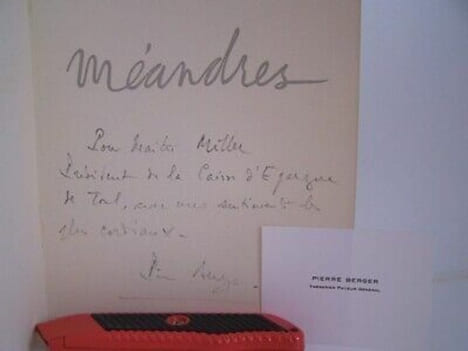 méandres
Pour Maître Miller
Président de la Caisse d'Epargne
de Toul, avec mes sentiments les
plus cordiaux.
Pierre Berger.
PIERRE BERGER
TRÉSORIER PAYEUR GÉNÉRAL